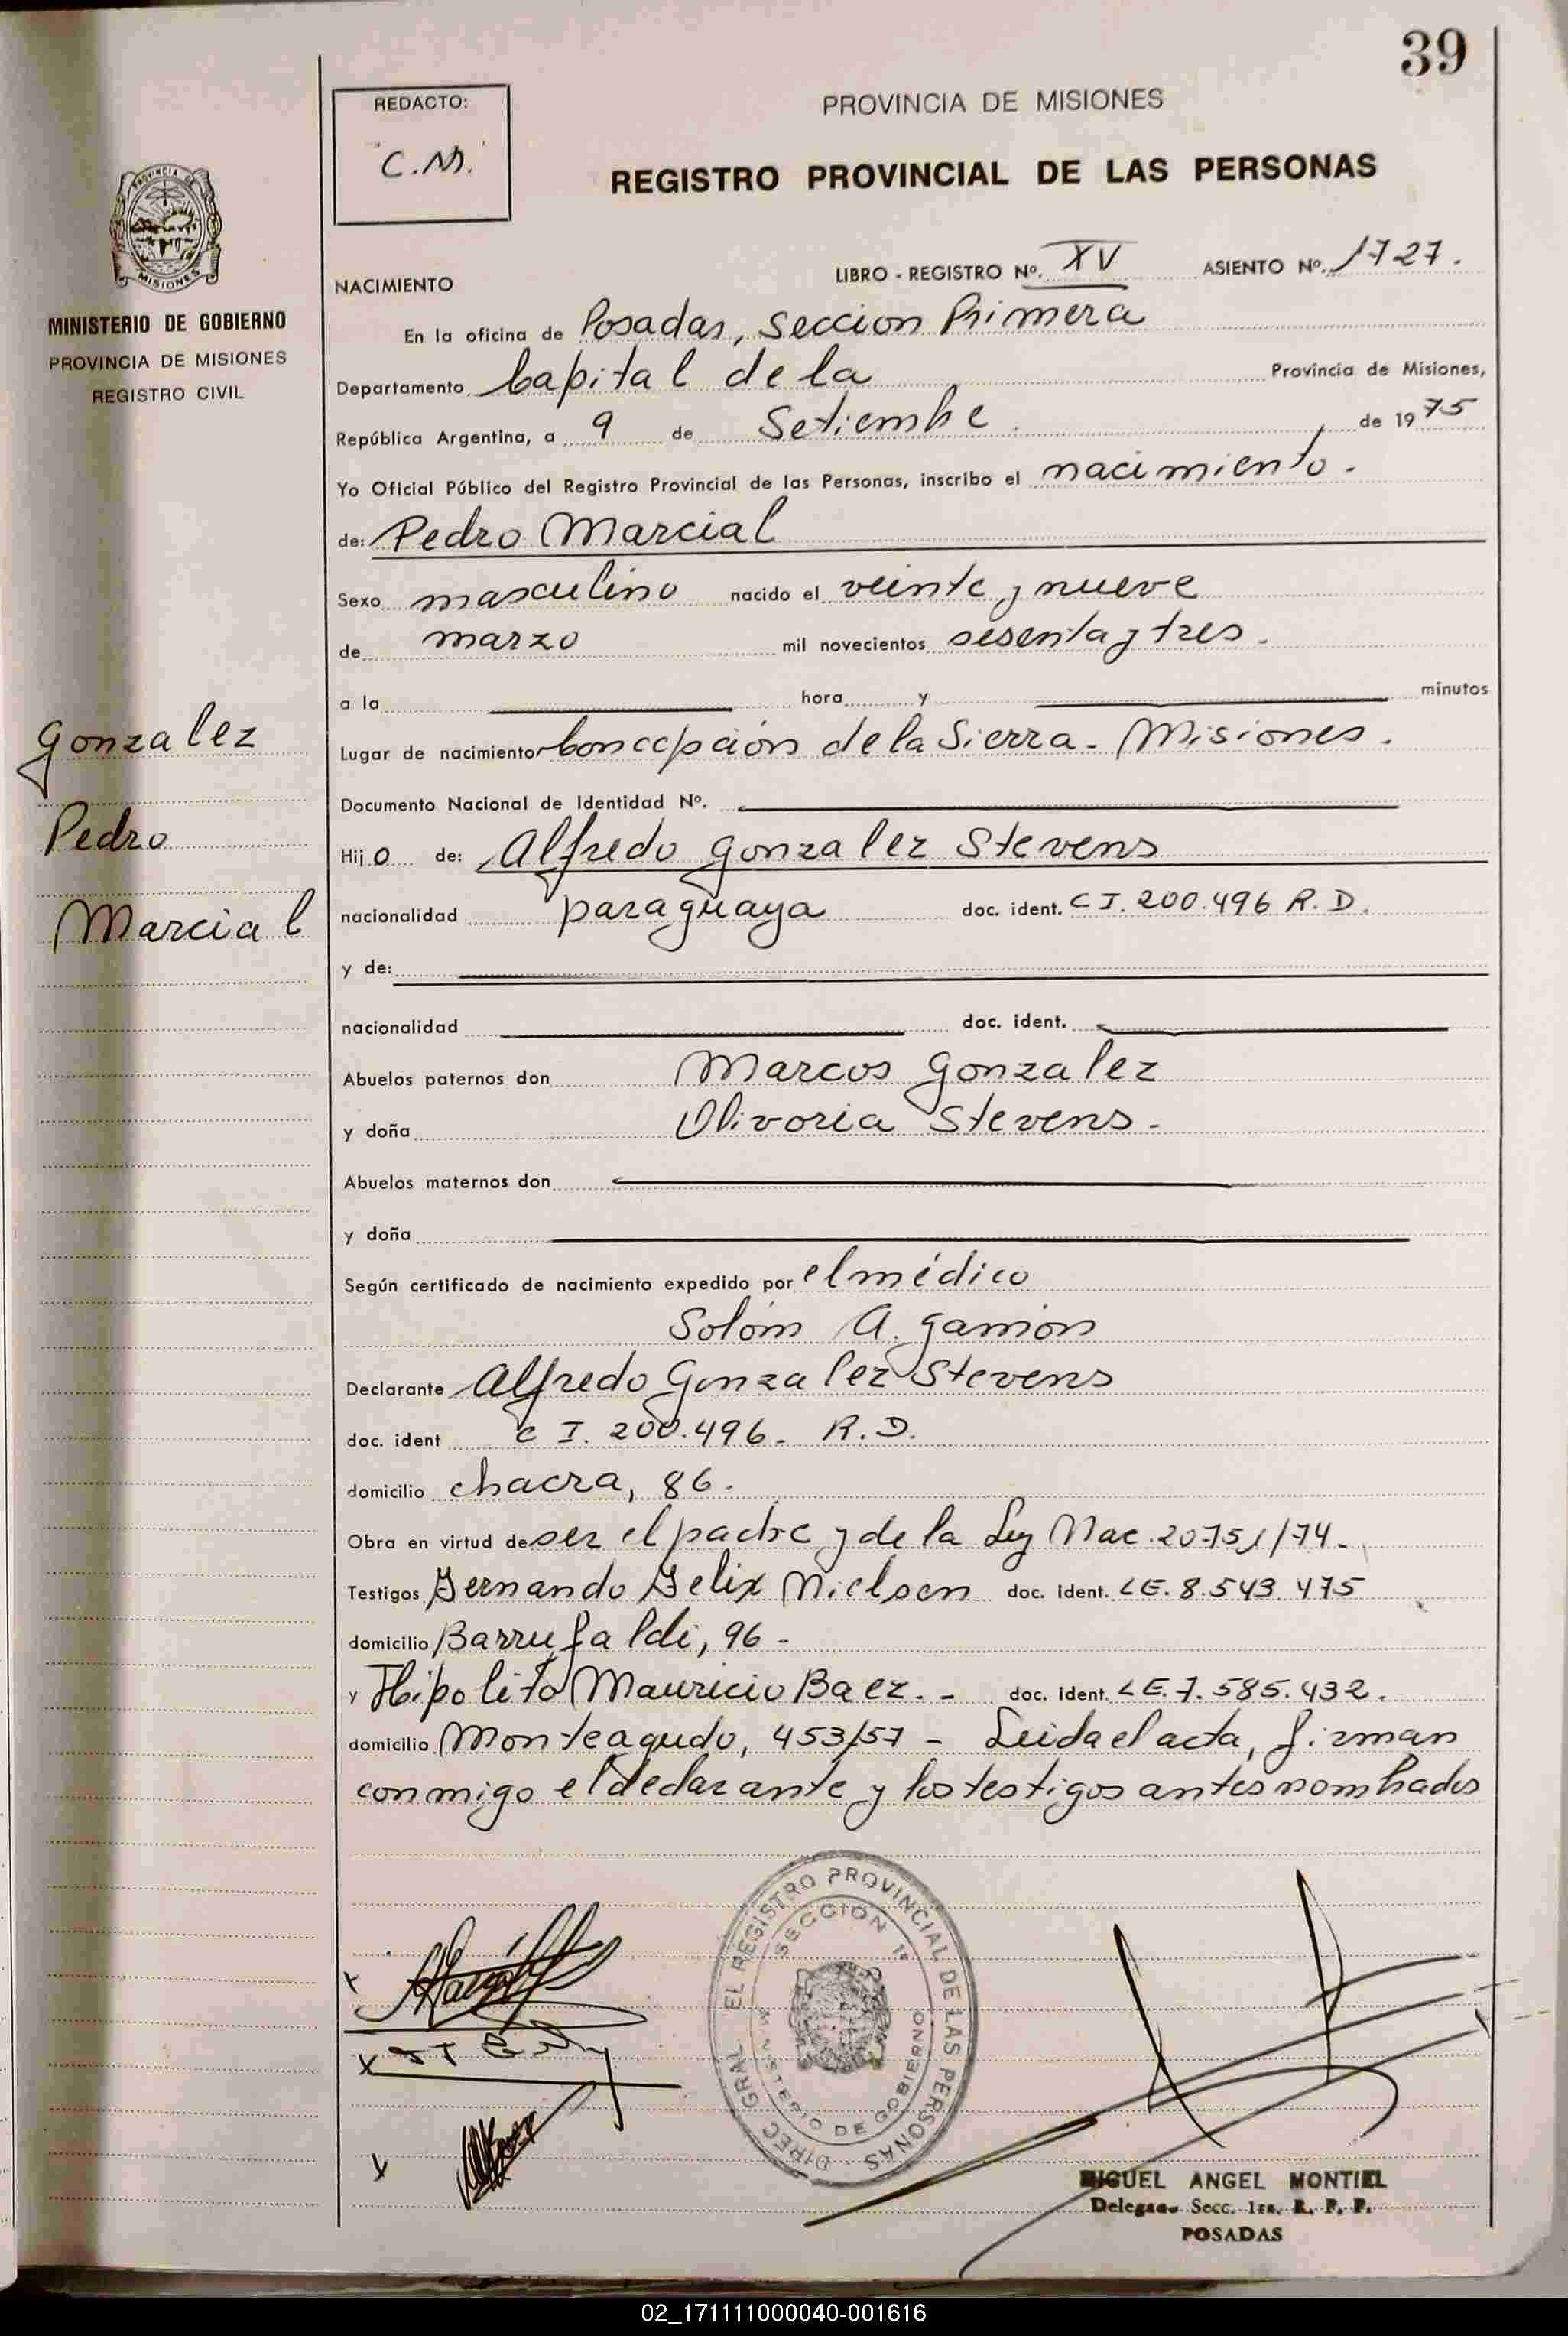 39
REDACTO:
C.M.
PROVINCIA DE MISIONES
REGISTRO PROVINCIAL DE LAS PERSONAS
PROVINCIA DE
MISIONES
MINISTERIO DE GOBIERNO
PROVINCIA DE MISIONES
REGISTRO CIVIL
NACIMIENTO
LIBRO - REGISTRO Nº. XV ASIENTO Nº. 1727.
En la oficina de Posadas, Seccion Primera
Departamento Capital de la Provincia de Misiones,
República Argentina, a 9 de Setiembre. de 1975
Yo Oficial Público del Registro Provincial de las Personas, inscribo el nacimiento.
de: Pedro Marcial
Sexo masculino nacido el veinte y nueve
de marzo mil novecientos sesenta y tres.
a la hora y minutos
Gonzalez
Pedro
Marcial
Lugar de nacimiento Concepción de la Sierra - Misiones.
Documento Nacional de Identidad Nº.
Hijo de: Alfredo Gonzalez Stevens
nacionalidad paraguaya doc. ident. C I. 200.496 R. D.
y de:
nacionalidad doc. ident.
Abuelos paternos don Marcos Gonzalez
y doña Olivoria Stevens.
Abuelos maternos don
y doña
Según certificado de nacimiento expedido por el médico
Solóm A. Gamón
Declarante Alfredo Gonzalez Stevens
doc. ident C I. 200.496. R.D.
domicilio chacra, 86.
Obra en virtud de ser el padre y de la Ley Nac. 20751/74.
Testigos Fernando Felix Nielsen doc. ident. LE. 8.543.475
domicilio Barrufaldi, 96 -
y Hipolito Mauricio Baez. - doc. ident. LE. 7.585.432.
domicilio Monteagudo, 453/57 - Leida el acta, firman
conmigo el declarante y los testigos antes nombrados
DIREC. GRAL. EL REGISTRO PROVINCIAL DE LAS PERSONAS
SECCION 1ª
MINISTERIO DE GOBIERNO
MIGUEL ANGEL MONTIEL
Delegado Secc. 1ra. R. P. P.
POSADAS
02_171111000040-001616